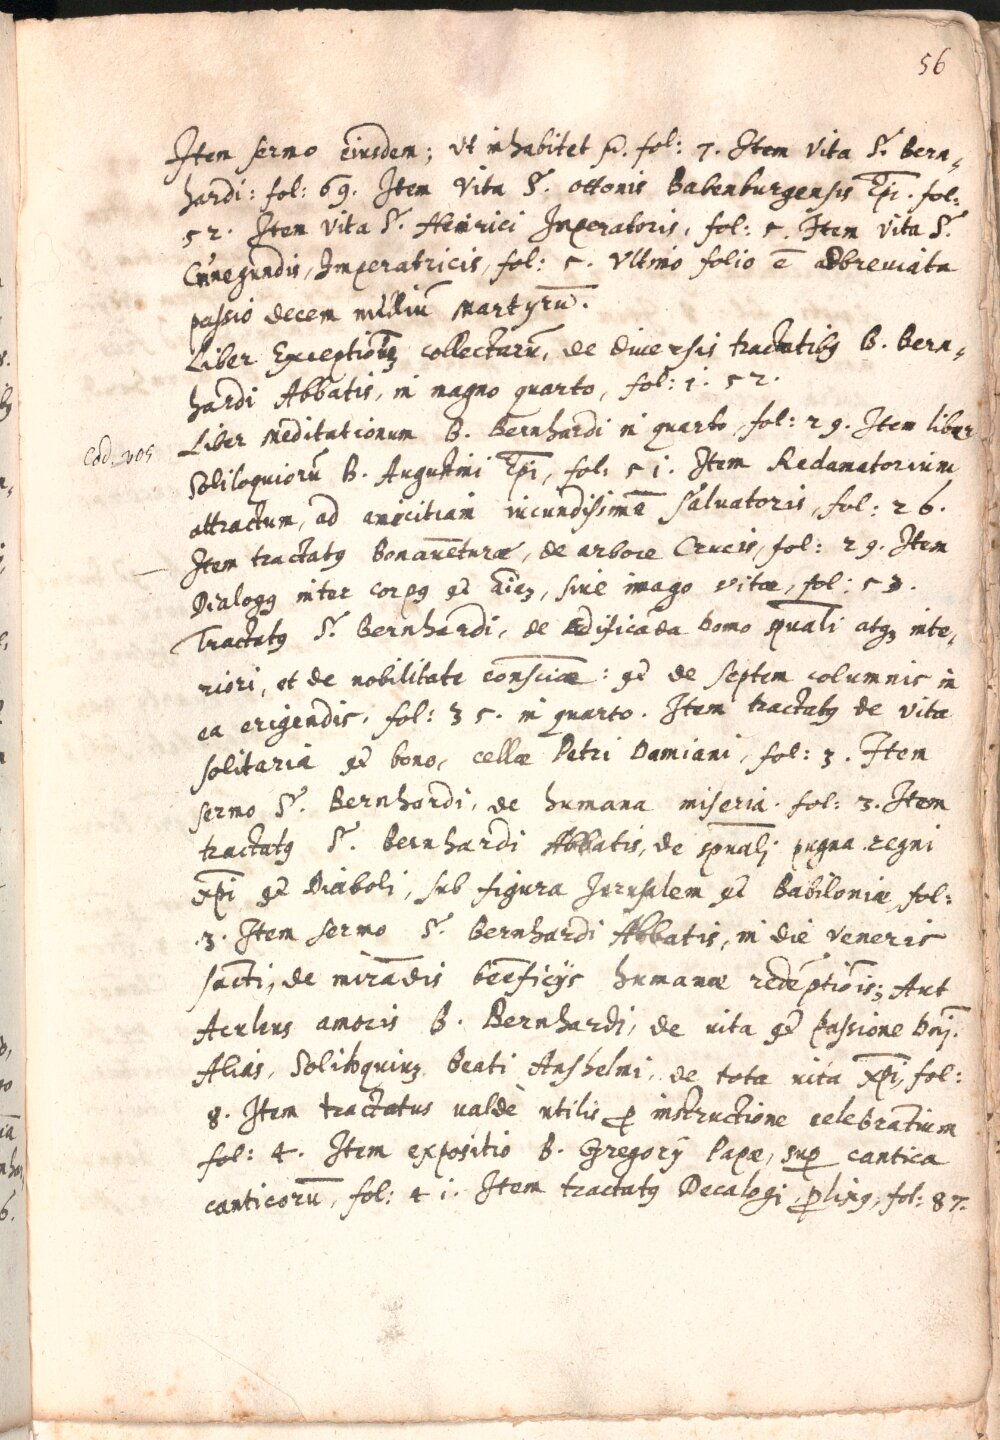 56
Item sermo eiusdem; ut inhabitet &c. fol: 7. Item Vita S. Bern,
hardi: fol: 69. Item Vita S. Ottonis Babenburgensis Epi. fol:
52. Item Vita S. Heinrici Imperatoris, fol: 5. Item Vita S.
Cunegundis, Imperatricis, fol: 5. Ultimo folio ē abbreviata
passio decem milliū Martyrū.
Liber Exceptionū collectarū, de diversis tractatibꝯ B. Bern,
hardi Abbatis, in magno quarto, fol: 1. 52.
Cod. 205
Liber Meditationum B. Bernhardi in quarto, fol: 29. Item liber
Soliloquiorū B. Augustini Epi, fol: 51. Item Redamatorium
attractum, ad amicitiam iucundissimā Salvatoris, fol: 26.
Item tractatꝯ Bonavēturæ, de arbore Crucis, fol: 29. Item
Dialogꝯ inter corpꝯ et aīaꝫ, sive imago vitæ, fol: 53.
Tractatꝯ S. Bernhardi, de ædificāda domo spuali atqꝫ inte,
riori, et de nobilitate consciæ: et de septem columnis in
ea erigendis, fol: 35. in quarto. Item tractatꝯ de vita
solitaria et bono, cellæ Petri Damiani, fol: 3. Item
sermo S. Bernhardi, de humana miseria. fol: 3. Item
tractatꝯ S. Bernhardi Abbatis, de spuali pugna regni
Xpi et Diaboli, sub figura Jerusalem et Babiloniæ, fol:
3. Item sermo S. Bernhardi Abbatis, in die Veneris
sācti, de mirādis beēficijs humanæ redēptiōis; Aut
Aculeus amoris B. Bernhardi, de vita et passione Dnj.
Alias, Soliloquiuꝫ Beati Anshelmi, de tota vita Xpi, fol:
8. Item tractatus valdè utilis ꝓ instructione celebratium
fol: 4. Item expositio B. Gregorij Papæ, suꝑ cantica
canticorū, fol: 41. Item tractatꝯ Decalogi ꝓlixꝯ, fol: 87.